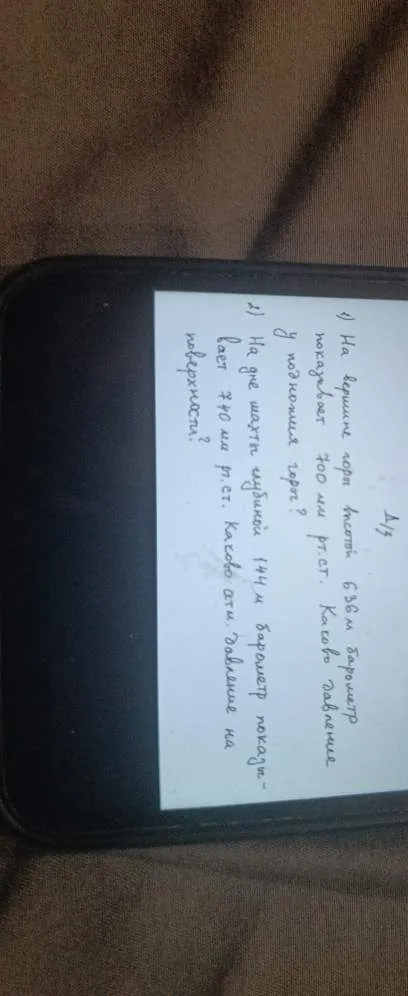 Д/з
1) На вершине горы высотой 636 м барометр
показывает 700 мм рт.ст. Каково давление
у подножия горы?
2) На дне шахты глубиной 144 м барометр показы-
вает 740 мм рт.ст. Каково атм. давление на
поверхности?